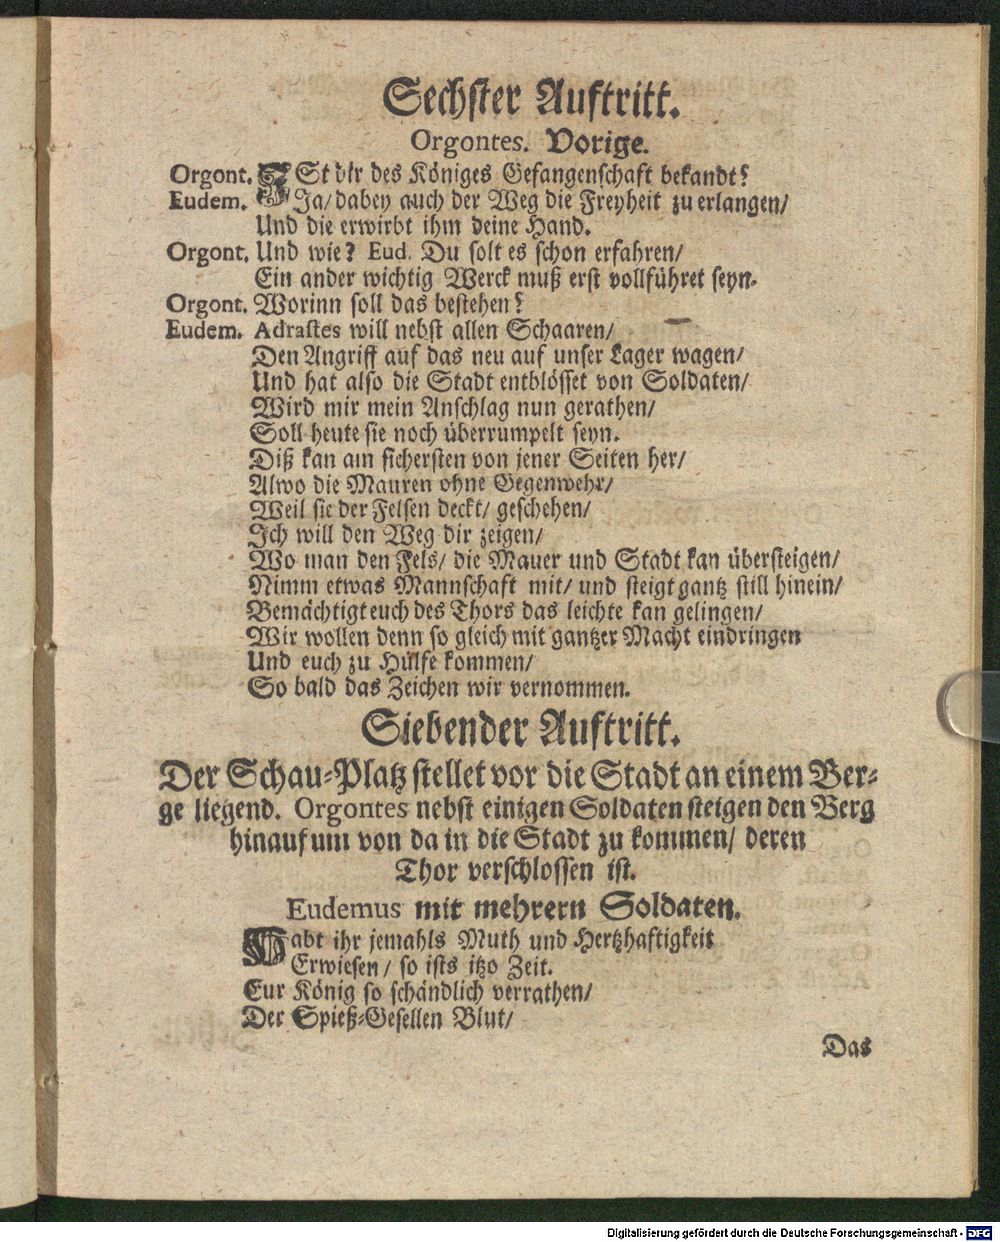 Sechster Auftritt.
Orgontes. Vorige.
Orgont. ISt dir des Königes Gefangenschaft bekandt?
Eudem. Ja/ dabey auch der Weg die Freyheit zu erlangen/
Und die erwirbt ihm deine Hand.
Orgont. Und wie? Eud. Du solt es schon erfahren/
Ein ander wichtig Werck muß erst vollführet seyn.
Orgont. Worinn soll das bestehen?
Eudem. Adrastes will nebst allen Schaaren/
Den Angriff auf das neu auf unser Lager wagen/
Und hat also die Stadt entblösset von Soldaten/
Wird mir mein Anschlag nun gerathen/
Soll heute sie noch überrumpelt seyn.
Diß kan am sichersten von jener Seiten her/
Alwo die Mauren ohne Gegenwehr/
Weil sie der Felsen deckt/ geschehen/
Ich will den Weg dir zeigen/
Wo man den Fels/ die Mauer und Stadt kan übersteigen/
Nimm etwas Mannschaft mit/ und steigt gantz still hinein/
Bemächtigt euch des Thors das leichte kan gelingen/
Wir wollen denn so gleich mit gantzer Macht eindringen
Und euch zu Hülfe kommen/
So bald das Zeichen wir vernommen.
Siebender Auftritt.
Der Schau-Platz stellet vor die Stadt an einem Ber-
ge liegend. Orgontes nebst einigen Soldaten steigen den Berg
hinauf um von da in die Stadt zu kommen/ deren
Thor verschlossen ist.
Eudemus mit mehrern Soldaten.
Habt ihr jemahls Muth und Hertzhaftigkeit
Erwiesen/ so ists itzo Zeit.
Eur König so schändlich verrathen/
Der Spieß-Gesellen Blut/
Das
Digitalisierung gefördert durch die Deutsche Forschungsgemeinschaft - DFG